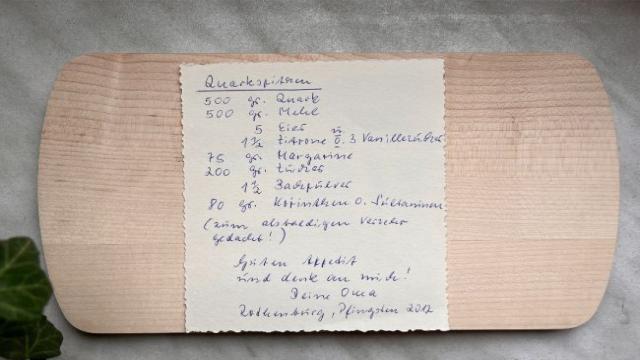 Quarkspitzen
500 gr. Quark
500 gr. Mehl
5 Eier
1½ Zitrone u. o. 3 Vanillezucker
75 gr. Margarine
200 gr. Zucker
1½ Backpulver
80 gr. Korinthen o. Sultaninen
(zum alsbaldigen Verzehr
gedacht!)
Guten Appetit
und denk an mich!
Deine Oma
Rothenburg, Pfingsten 2012